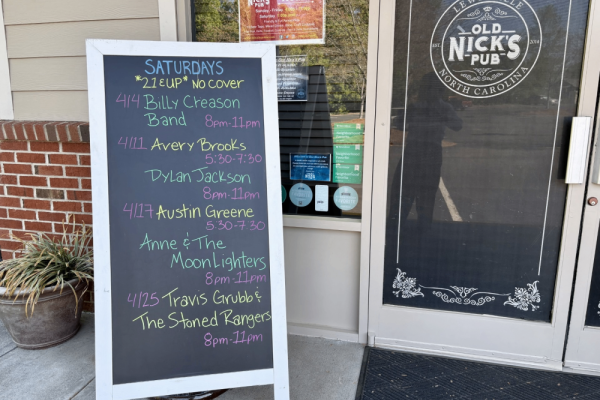 SATURDAYS
*21 & UP* No COVER
4/4 Billy Creason
Band 8pm-11pm
4/11 Avery Brooks
5:30-7:30
Dylan Jackson
8pm-11pm
4/17 Austin Greene
5:30-7:30
Anne & The
MoonLighters
8pm-11pm
4/25 Travis Grubb &
The Stoned Rangers
8pm-11pm
NICK'S
PUB
LEWISVILLE
OLD
NICK'S
PUB
NORTH CAROLINA